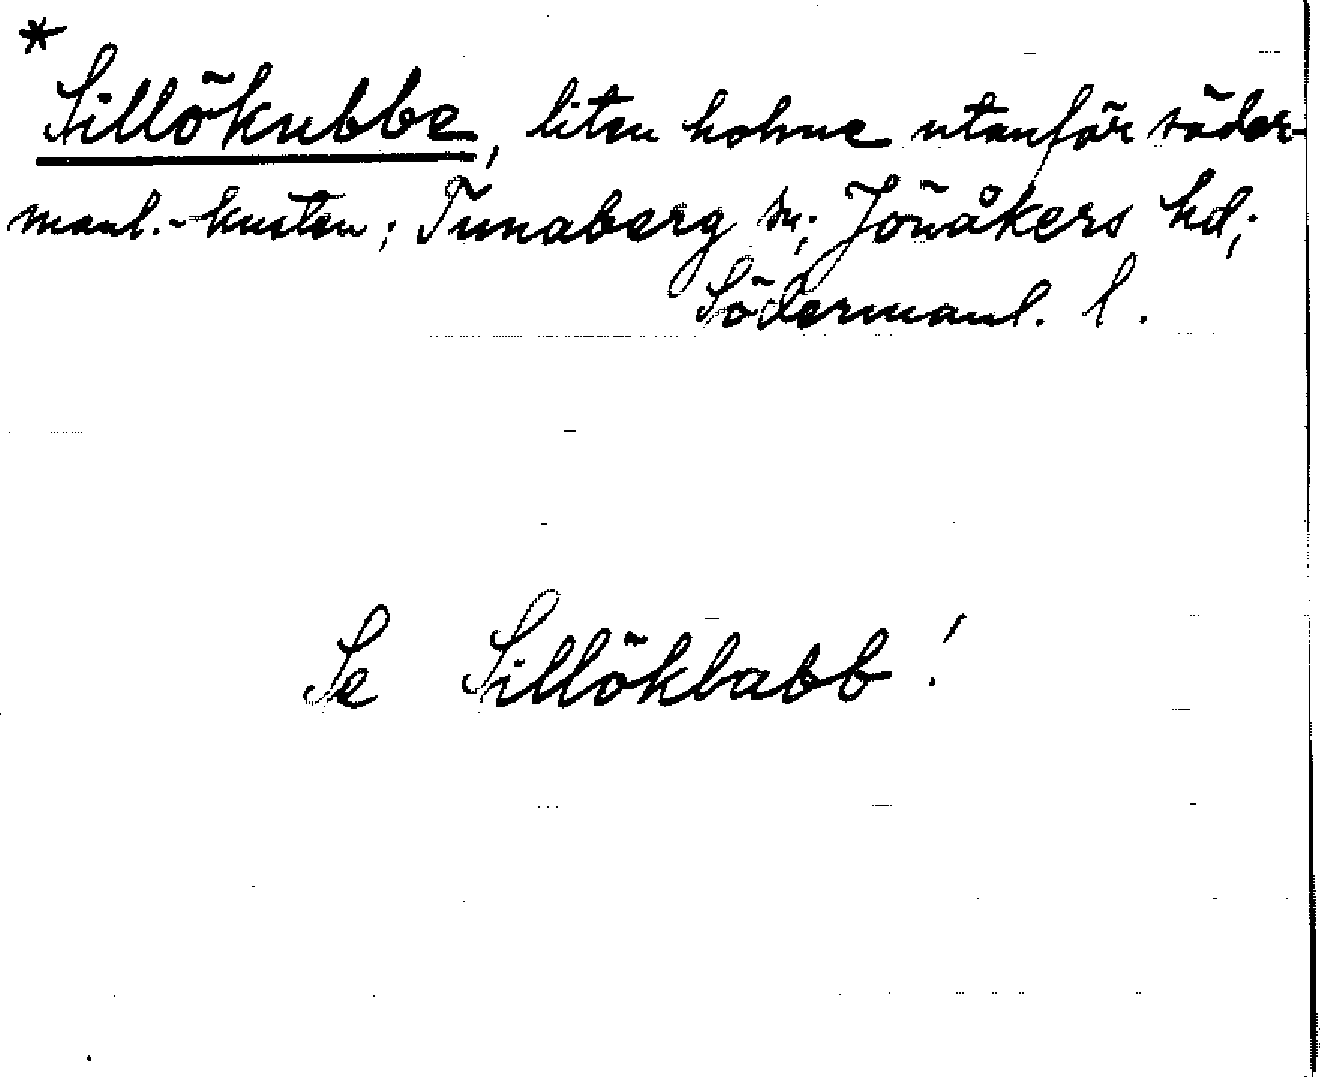 *
Sillökubbe, liten holme utanför söder-
manl.-kusten; Tunaberg sn; Jönåkers hd;
Södermanl. l.
Se Sillöklabb!